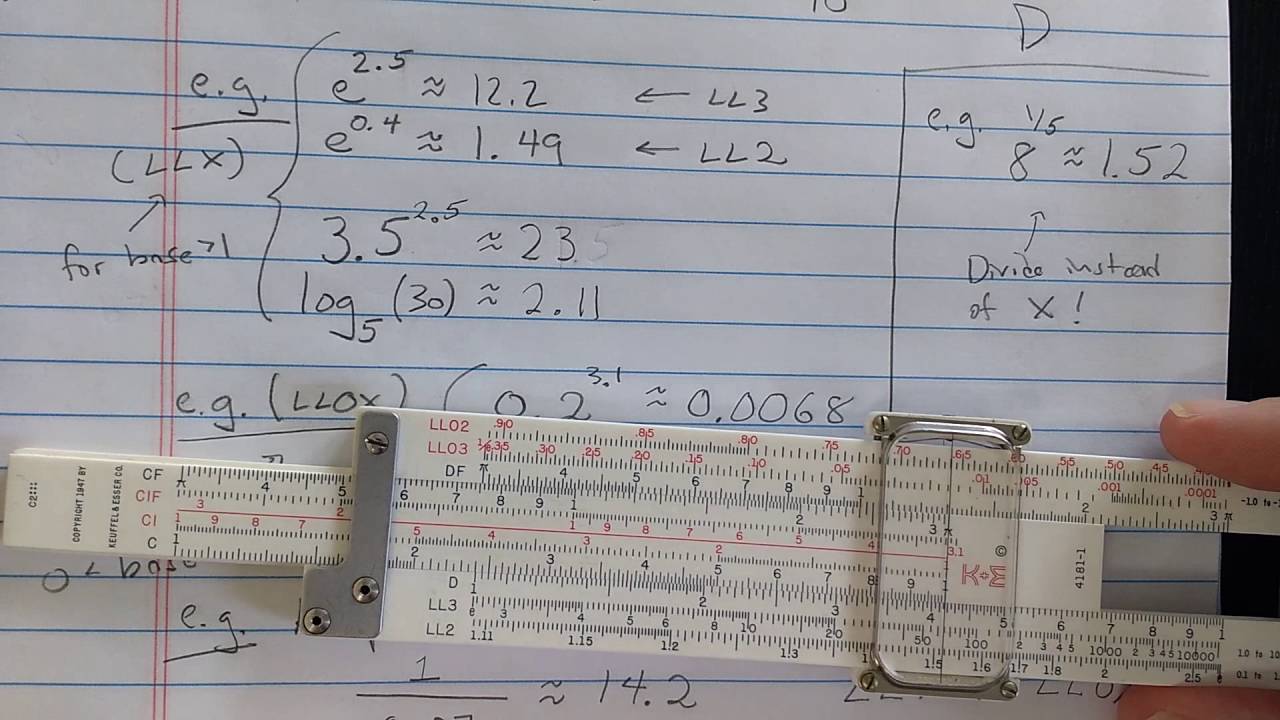 10
D
e.g. e^2.5 ≈ 12.2 ← LL3
e^0.4 ≈ 1.49 ← LL2
(LLX)
for base >1
3.5^2.5 ≈ 23.5
log_5(30) ≈ 2.11
e.g. 8^1/5 ≈ 1.52
Divide instead
of X!
e.g. (LL0X) 0.2^3.1 ≈ 0.0068
LL02 .90 .85 .80 .75 .70 .65 .60 .55 .50 .45
LL03 .35 .30 .25 .20 .15 .10 .05 .01 .005 .001 .0001
DF π 4 5 6 7 8 9 1 2 3 π
CF π 4 5 6 7 8 9 1 2 3 π
CIF 3 2 1 9 8 7 6 5 4 3.1
CI 1 9 8 7 5 4 3 2
C 1 2 3 4 5 6 7 8 9 1
D 1 2 3 4 5 6 7 8 9 1
LL3 e 3 4 5 6 8 10 20 50 100 1000 10000
LL2 1.11 1.15 1.2 1.3 1.5 1.6 1.7 1.8 2 2.5 e
C2
COPYRIGHT 1947 BY
KEUFFEL & ESSER CO.
©
K+E
4181-1
-1.0 to
1.0 to 10
0.1 to 1.
0 < base
e.g.
1
≈ 14.2